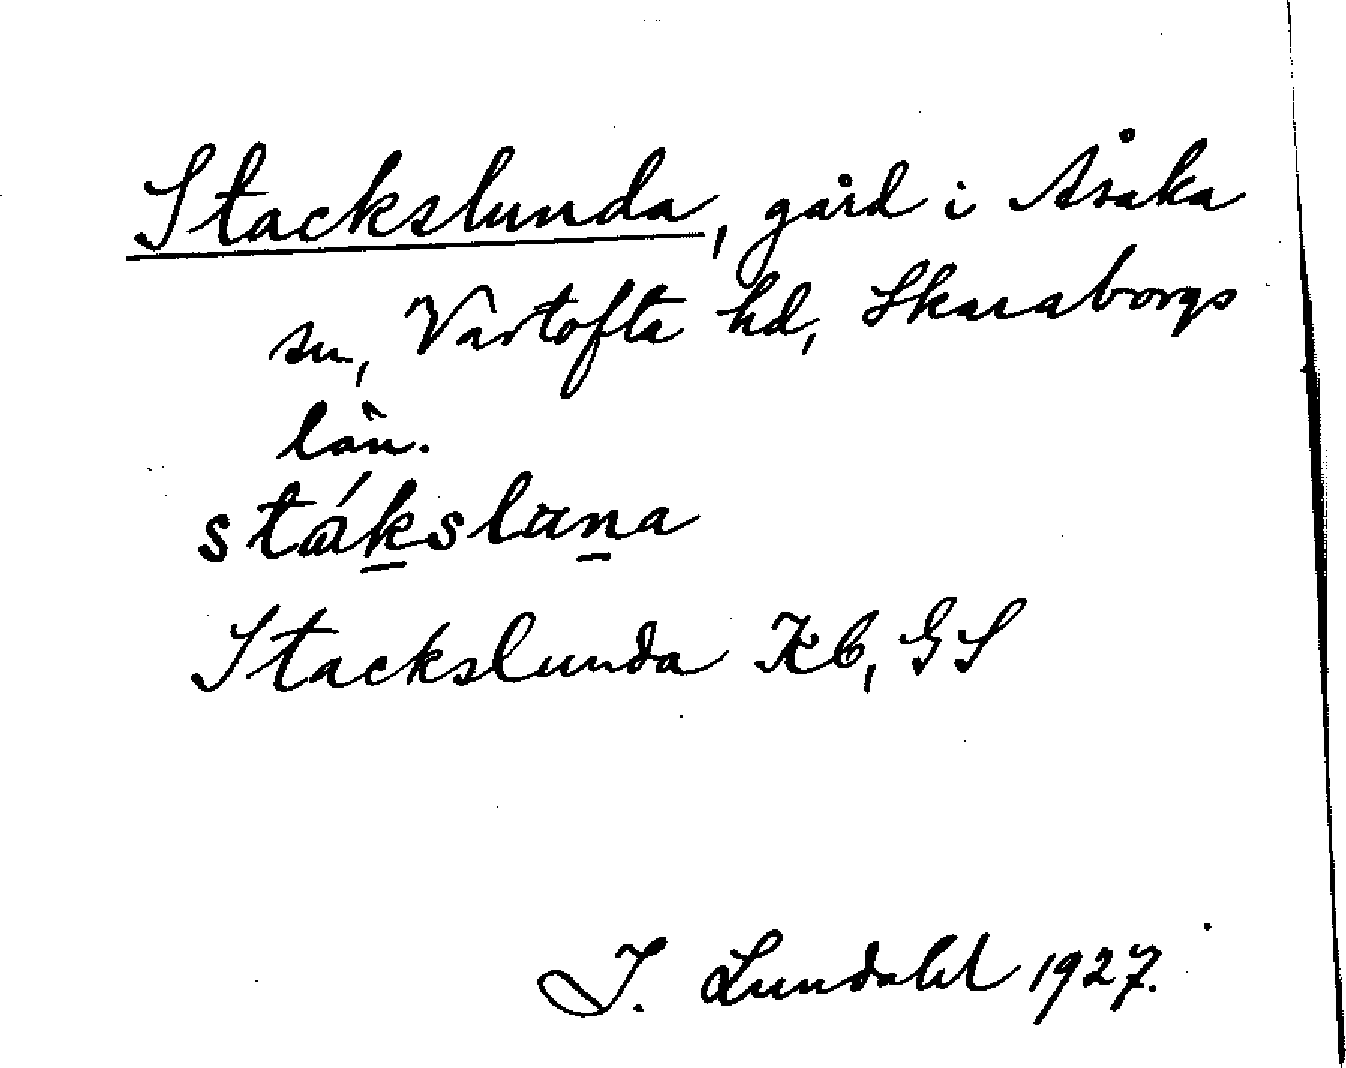 Stackslunda, gård i Åsaka
sn, Vartofta hd, Skaraborgs
län.
stákslɯna
Stackslunda Kb, GS
I. Lundahl 1927.